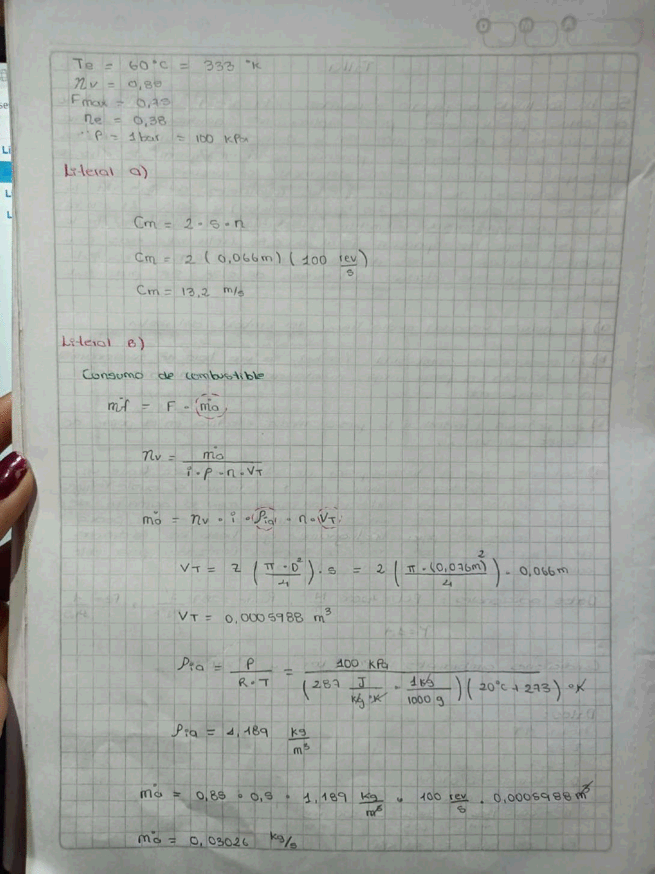 Te = 60°C = 333 °K
nv = 0,85
Fmax =
ne = 0,38
P = 1bar = 100 KPa
Literal a)
Cm = 2 · s · n
Cm = 2 (0,066m) (100 rev/s)
Cm = 13,2 m/s
Literal B)
Consumo de combustible
ṁf = F · ṁa
nv = ṁa / (i · ρ · n · VT)
ṁa = nv · i · ρia · n · VT
VT = z (π · D² / 4) · s = 2 (π · (0,076m)² / 4) · 0,066m
VT = 0,0005988 m³
ρia = P / (R · T) = 100 KPa / (287 J/Kg °K · 1Kg/1000 g) (20°C + 273) °K
ρia = 1,189 kg/m³
ṁa = 0,85 · 0,5 · 1,189 kg/m³ · 100 rev/s · 0,0005988 m³
ṁa = 0,03026 kg/s